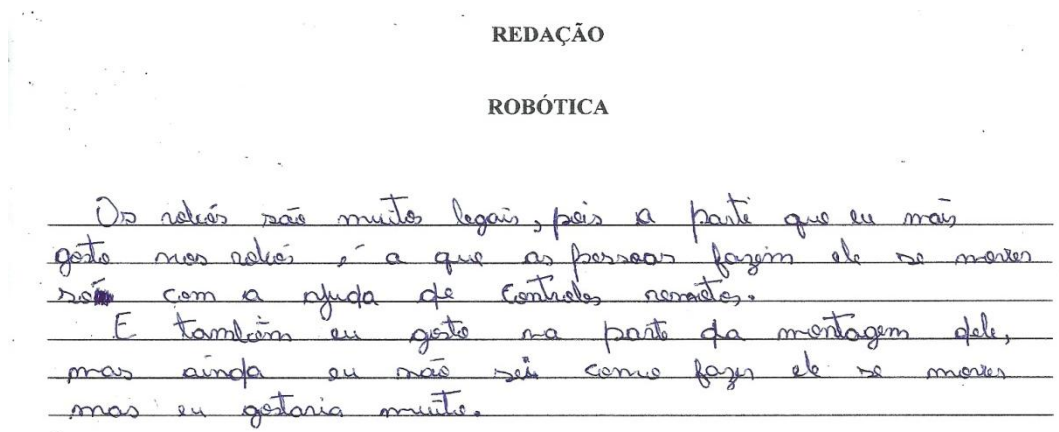 REDAÇÃO
ROBÓTICA
Os robôs são muitos legais, pois a parte que eu mais
gosto nos robôs, é a que as pessoas fazem ele se mover
só com a ajuda de controles remotos.
E também eu gosto na parte da montagem dele,
mas ainda eu não sei como fazer ele se mover
mas eu gostaria muito.